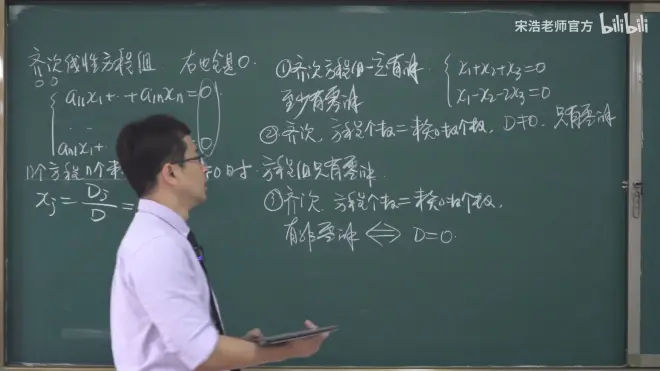 宋浩老师官方 bilibili
齐次线性方程组 右边全是0.
a₁₁x₁+‥+a₁ₙxₙ=0
‥
aₙ₁x₁+ 0
n个方程n个未 0时 方程组只有零解.
xⱼ=Dⱼ/D=
①齐次方程组一定有解.
至少有零解
x₁+x₂+x₃=0
x₁-x₂-2x₃=0
②齐次, 方程个数=未知数个数, D≠0. 只有零解
③齐次. 方程个数=未知数个数,
有非零解 ⇔ D=0.